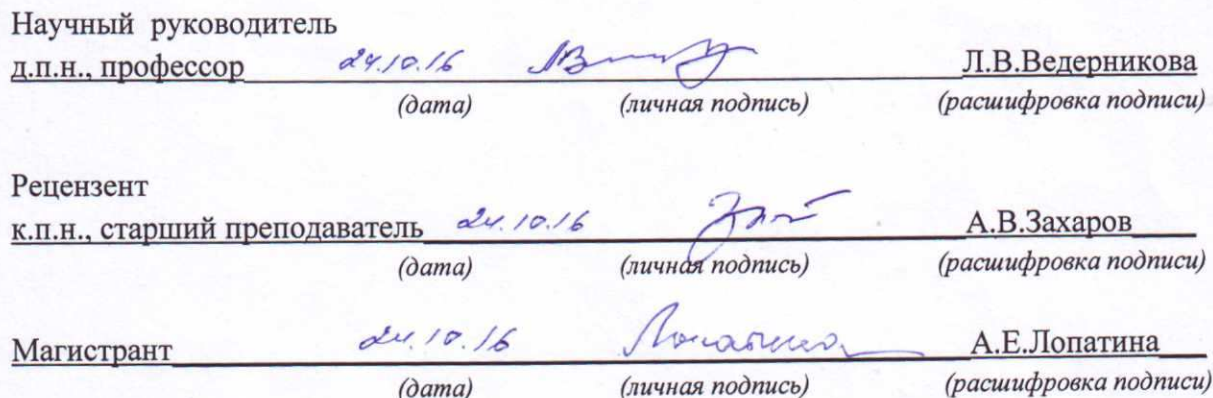 Научный руководитель
д.п.н., профессор 24.10.16 Л.В.Ведерникова
(дата) (личная подпись) (расшифровка подписи)
Рецензент
к.п.н., старший преподаватель 24.10.16 А.В.Захаров
(дата) (личная подпись) (расшифровка подписи)
Магистрант 24.10.16 Лопатина А.Е.Лопатина
(дата) (личная подпись) (расшифровка подписи)